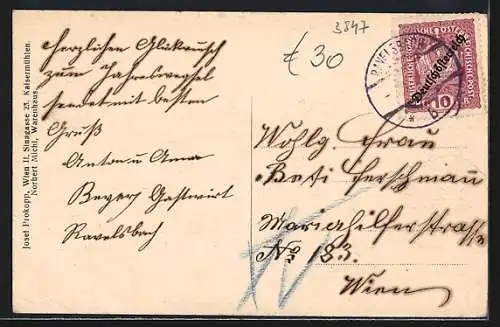 3847
€30
Herzlichen Glückwunsch
zum Jahreswechsel
sendet mit besten
Gruß
Anton u Anna
Beyer Gastwirt
Ravelsbach
Josef Prokopp, Wien II, Singasse 23, Kaisermühlen.
Norbert Michl, Warenhaus
RAVELSBACH
Deutschösterreich
10
Wohlg. Frau
Beti Ferschmau
Mariahilferstrasse
No 183.
Wien